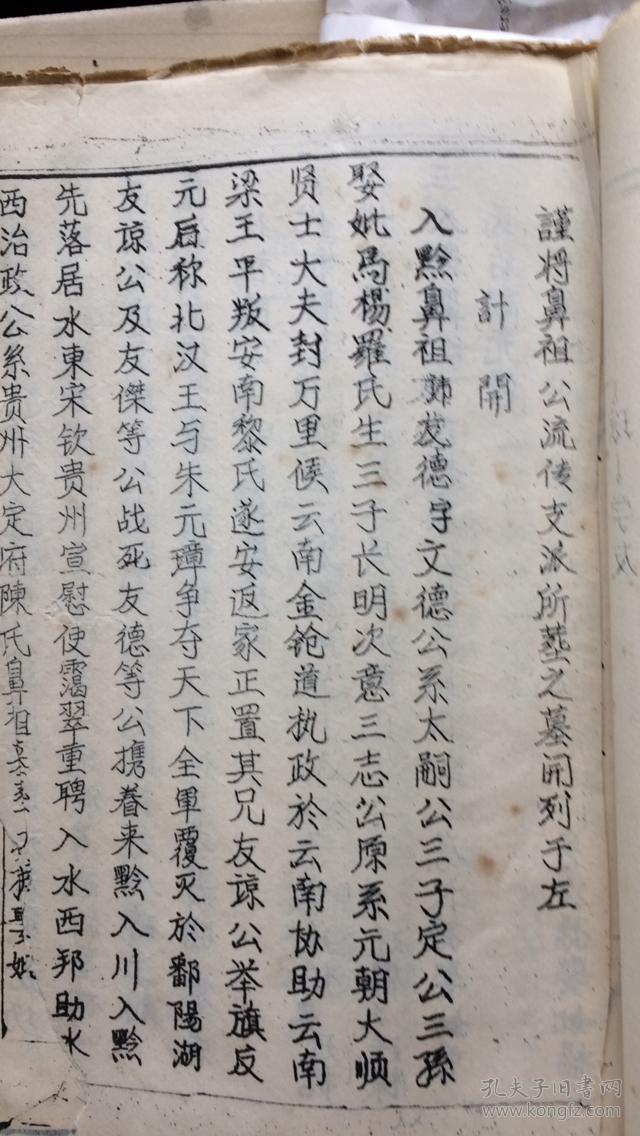 謹将鼻祖公流传支派所塟之墓開列于左
計開
入黔鼻祖諱友德字文德公系太嗣公三子定公三孫
娶妣馬楊羅氏生三子长明次意三志公原系元朝大顺
贤士大夫封万里候云南金鎗道执政於云南协助云南
梁王平叛安南黎氏遂安返家正置其兄友諒公举旗反
元后称北汉王与朱元璋争夺天下全軍覆灭於鄱陽湖
友諒公及友傑等公战死友德等公携眷来黔入川入黔
先落居水東宋钦贵州宣慰使靄翠重聘入水西邦助水
西治政公系贵州大定府陳氏鼻祖
孔夫子旧书网
www.kongfz.com